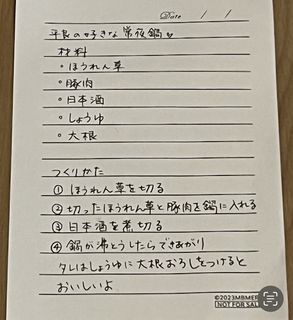 Date / /
平良の好きな常夜鍋
材料
・ほうれん草
・豚肉
・日本酒
・しょうゆ
・大根
つくりかた
① ほうれん草を切る
② 切ったほうれん草と豚肉を鍋に入れる
③ 日本酒を煮切る
④ 鍋が沸とうしたらできあがり
タレはしょうゆに大根おろしをつけると
おいしいよ
©2023MBMER
NOT FOR SAL